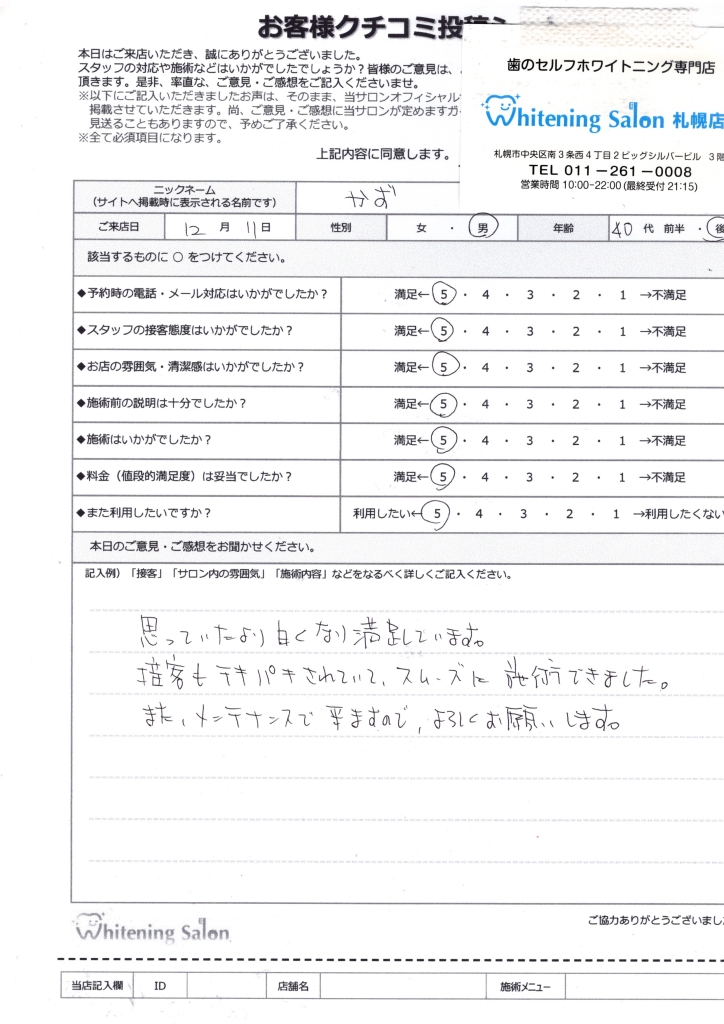 お客様クチコミ投稿
本日はご来店いただき、誠にありがとうございました。
スタッフの対応や施術などはいかがでしたでしょうか?皆様のご意見は、
頂きます。是非、率直な、ご意見・ご感想をご記入くださいませ。
※以下にご記入いただきましたお声は、そのまま、当サロンオフィシャル
掲載させていただきます。尚、ご意見・ご感想に当サロンが定めますガ
見送ることもありますので、予めご了承ください。
※全て必須項目になります。
上記内容に同意します。
歯のセルフホワイトニング専門店
Whitening Salon 札幌店
札幌市中央区南3条西4丁目2ビッグシルバービル 3階
TEL 011-261-0008
営業時間 10:00-22:00(最終受付 21:15)
ニックネーム
(サイトへ掲載時に表示される名前です)
かず
ご来店日 12 月 11 日 性別 女 ・ 男 年齢 40 代 前半 ・ 後
該当するものに ○ をつけてください。
◆予約時の電話・メール対応はいかがでしたか? 満足← 5 ・ 4 ・ 3 ・ 2 ・ 1 →不満足
◆スタッフの接客態度はいかがでしたか? 満足← 5 ・ 4 ・ 3 ・ 2 ・ 1 →不満足
◆お店の雰囲気・清潔感はいかがでしたか? 満足← 5 ・ 4 ・ 3 ・ 2 ・ 1 →不満足
◆施術前の説明は十分でしたか? 満足← 5 ・ 4 ・ 3 ・ 2 ・ 1 →不満足
◆施術はいかがでしたか? 満足← 5 ・ 4 ・ 3 ・ 2 ・ 1 →不満足
◆料金(値段的満足度)は妥当でしたか? 満足← 5 ・ 4 ・ 3 ・ 2 ・ 1 →不満足
◆また利用したいですか? 利用したい← 5 ・ 4 ・ 3 ・ 2 ・ 1 →利用したくない
本日のご意見・ご感想をお聞かせください。
記入例)「接客」「サロン内の雰囲気」「施術内容」などをなるべく詳しくご記入ください。
思っていたより白くなり満足しています。
接客もテキパキされていて、スムーズに施術できました。
また、メンテナンスで来ますので、よろしくお願いします。
Whitening Salon
ご協力ありがとうございまし
当店記入欄 ID 店舗名 施術メニュー